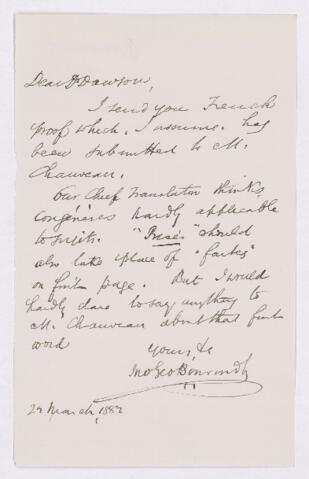 Dear Dr Dawson,
I send you French
proof which, I assume, has
been submitted to M.
Chauveau.
Our Chief Translator thinks
congénères hardly applicable
to fruits. "Prisés" should
also take place of "faites"
on first page. But I would
hardly dare to say anything to
M. Chauveau about that first
word
Yours, &c
Jno Geo Bourinot
29 March, 1882